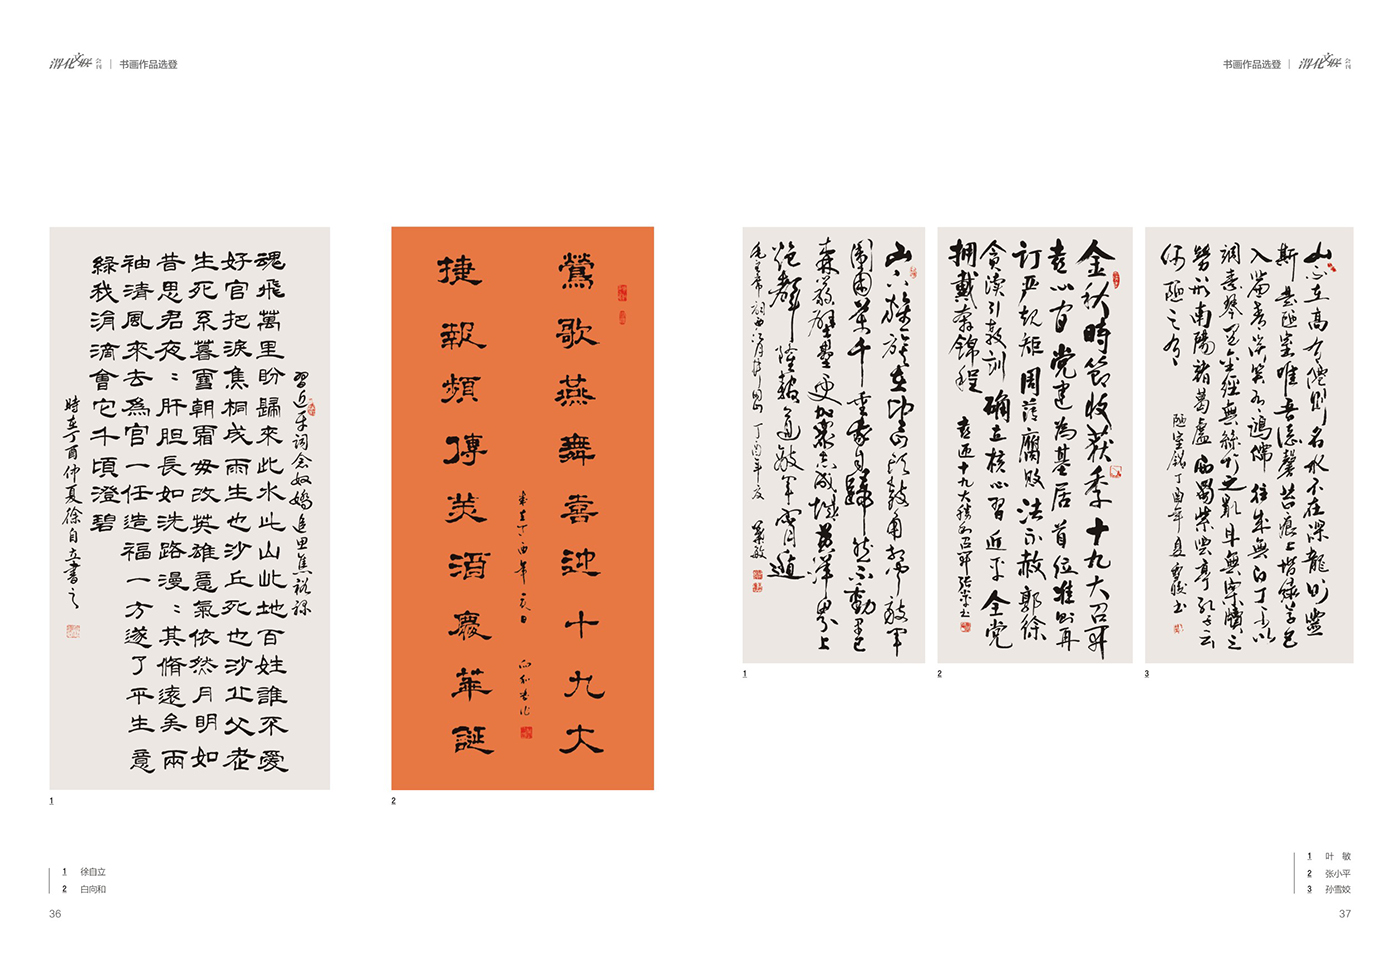 渭化文联 会刊 | 书画作品选登
魂飛萬里盼歸來此水此山此地百姓誰不愛
好官把淚焦桐成雨生也沙丘死也沙丘父老
生死系暮雪朝霜毋改英雄意氣依然月明如
昔思君夜〻肝胆長如洗路漫〻其脩遠矣兩
袖清風來去為官一任造福一方遂了平生意
綠我涓滴會它千頃澄碧
習近平詞念奴嬌追思焦裕祿
時在丁酉仲夏徐自立書之
1
鶯歌燕舞喜迎十九大
捷報頻傳美酒慶華誕
2
1 徐自立
2 白向和
36
书画作品选登 | 渭化文联 会刊
山下旌旗在望山頭鼓角相聞敵軍
圍困萬千重我自歸然不動早已
森嚴壁壘更加衆志成城黃洋界上
炮聲隆報道敵軍宵遁
毛主席詞西江月井岡山 丁酉年夏 葉敏
1
金秋時節收获季十九大召开
党建为基居首位准则再
订严规矩周薄腐败法不赦郭徐
贪渎引教训确立核心习近平全党
拥戴奔锦程
2
山不在高有僊則名水不在深龍則靈
斯是陋室唯吾德馨苔痕上堦綠草色
入簾青談笑有鴻儒往來無白丁可以
調素琴閱金經無絲竹之亂耳無案牘之
勞形南陽諸葛廬西蜀紫雲亭孔子云
何陋之有
陋室銘丁酉年夏雪姣书
3
1 叶 敏
2 张小平
3 孙雪姣
37